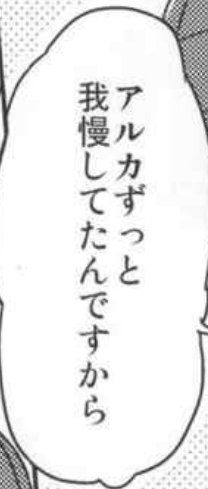 アルカずっと
我慢してたんですから